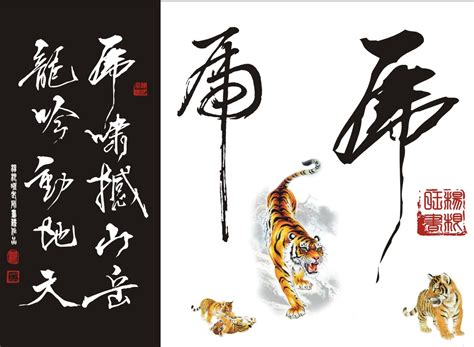 虎嘯撼山岳
龍吟動地天
虎
虎